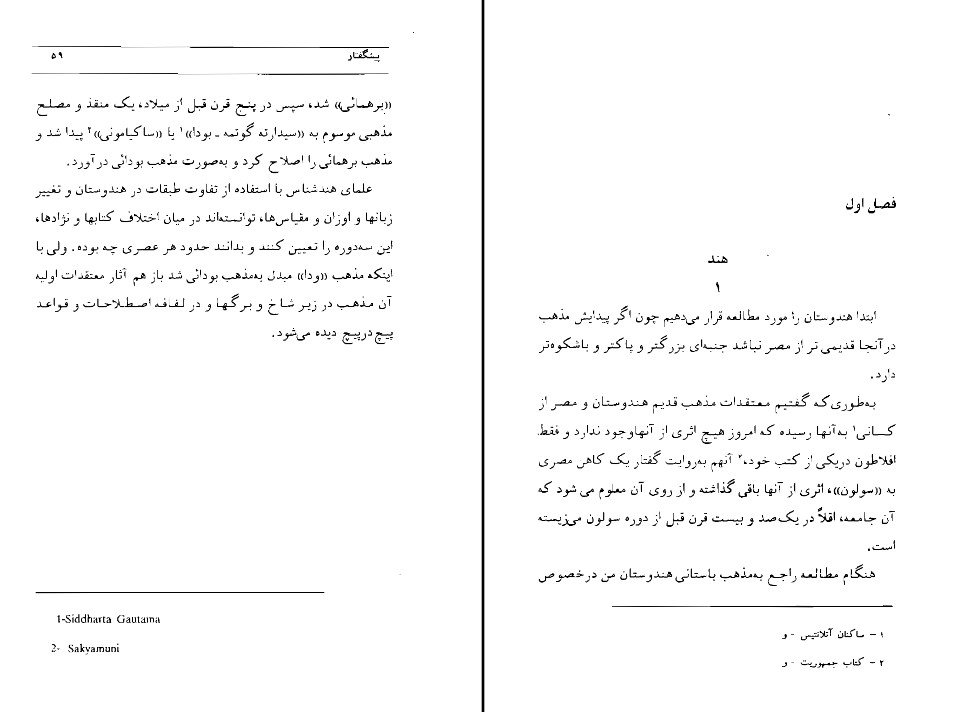 فصل اول
هند
۱
ابتدا هندوستان را مورد مطالعه قرار می‌دهیم چون اگر پیدایش مذهب
در آنجا قدیمی تر از مصر نباشد جنبه‌ای بزرگتر و پاکتر و باشکوه‌تر
دارد.
به‌طوری‌که گفتیم معتقدات مذهب قدیم هندوستان و مصر از
کسانی۱ به‌آنها رسیده که امروز هیچ اثری از آنهاوجود ندارد و فقط
افلاطون دریکی از کتب خود،۲ آنهم به‌روایت گفتار یک کاهن مصری
به «سولون»، اثری از آنها باقی گذاشته و از روی آن معلوم می شود که
آن جامعه، اقلاً در یک‌صد و بیست قرن قبل از دوره سولون می‌زیسته
است.
هنگام مطالعه راجع به‌مذهب باستانی هندوستان من درخصوص
۱ – ساکنان آتلانتیس - و
۲ – کتاب جمهوریت - و
پیشگفتار ۵۹
«برهمائی» شد، سپس در پنج قرن قبل از میلاد، یک منقذ و مصلح
مذهبی موسوم به «سیدارته گوتمه ـ بودا»۱ یا «ساکیامونی»۲ پیدا شد و
مذهب برهمائی را اصلاح کرد و به‌صورت مذهب بودائی درآورد.
علمای هندشناس با استفاده از تفاوت طبقات در هندوستان و تغییر
زبانها و اوزان و مقیاس‌ها، توانسته‌اند در میان اختلاف کتابها و نژادها،
این سه‌دوره را تعیین کنند و بدانند حدود هر عصری چه بوده. ولی با
اینکه مذهب «ودا» مبدل به‌مذهب بودائی شد باز هم آثار معتقدات اولیه
آن مذهب در زیر شاخ و برگها و در لفافه اصطلاحات و قواعد
پیچ درپیچ دیده می‌شود.
1-Siddharta Gautama
2- Sakyamuni